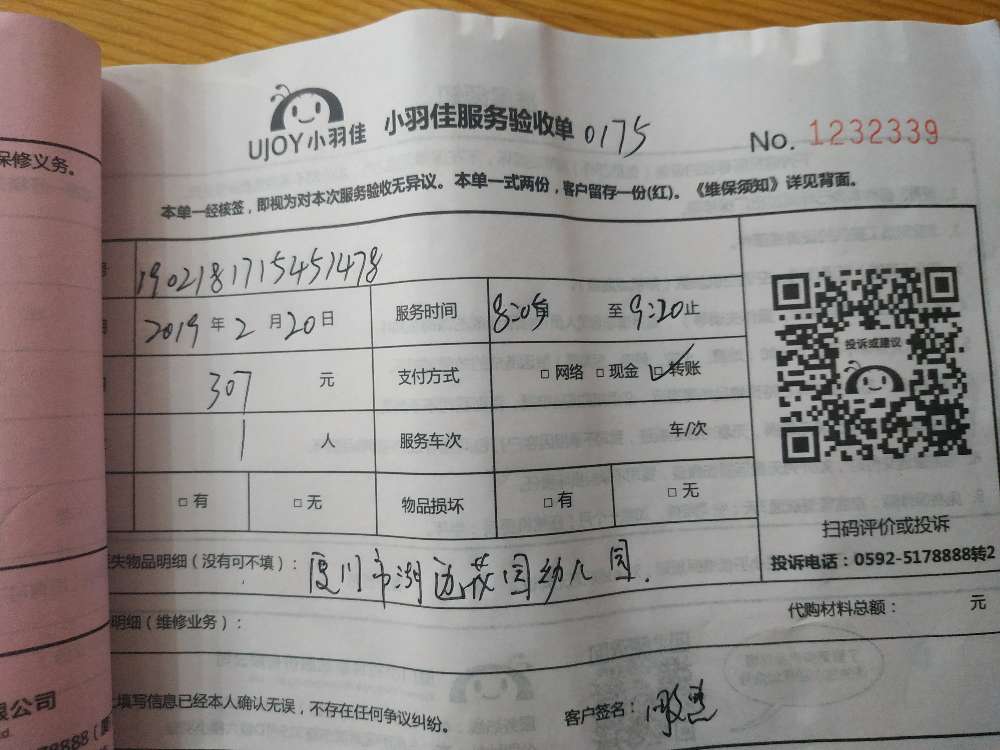 保修义务。
UJOY小羽佳 小羽佳服务验收单 0175 No. 1232339
本单一经核签，即视为对本次服务验收无异议。本单一式两份，客户留存一份(红)。《维保须知》详见背面。
1902181715451478
2019 年 2 月 20 日 服务时间 8:20 至 9:20 止
307 元 支付方式 □ 网络 □ 现金 □ 转账
投诉或建议
1 人 服务车次 车/次
□ 有 □ 无 物品损坏 □ 有 □ 无
扫码评价或投诉
投诉电话：0592-5178888转2
失物品明细（没有可不填）： 厦门市湖边花园幼儿园.
代购材料总额： 元
明细（维修业务）：
填写信息已经本人确认无误，不存在任何争议纠纷。 客户签名：
限公司
78888